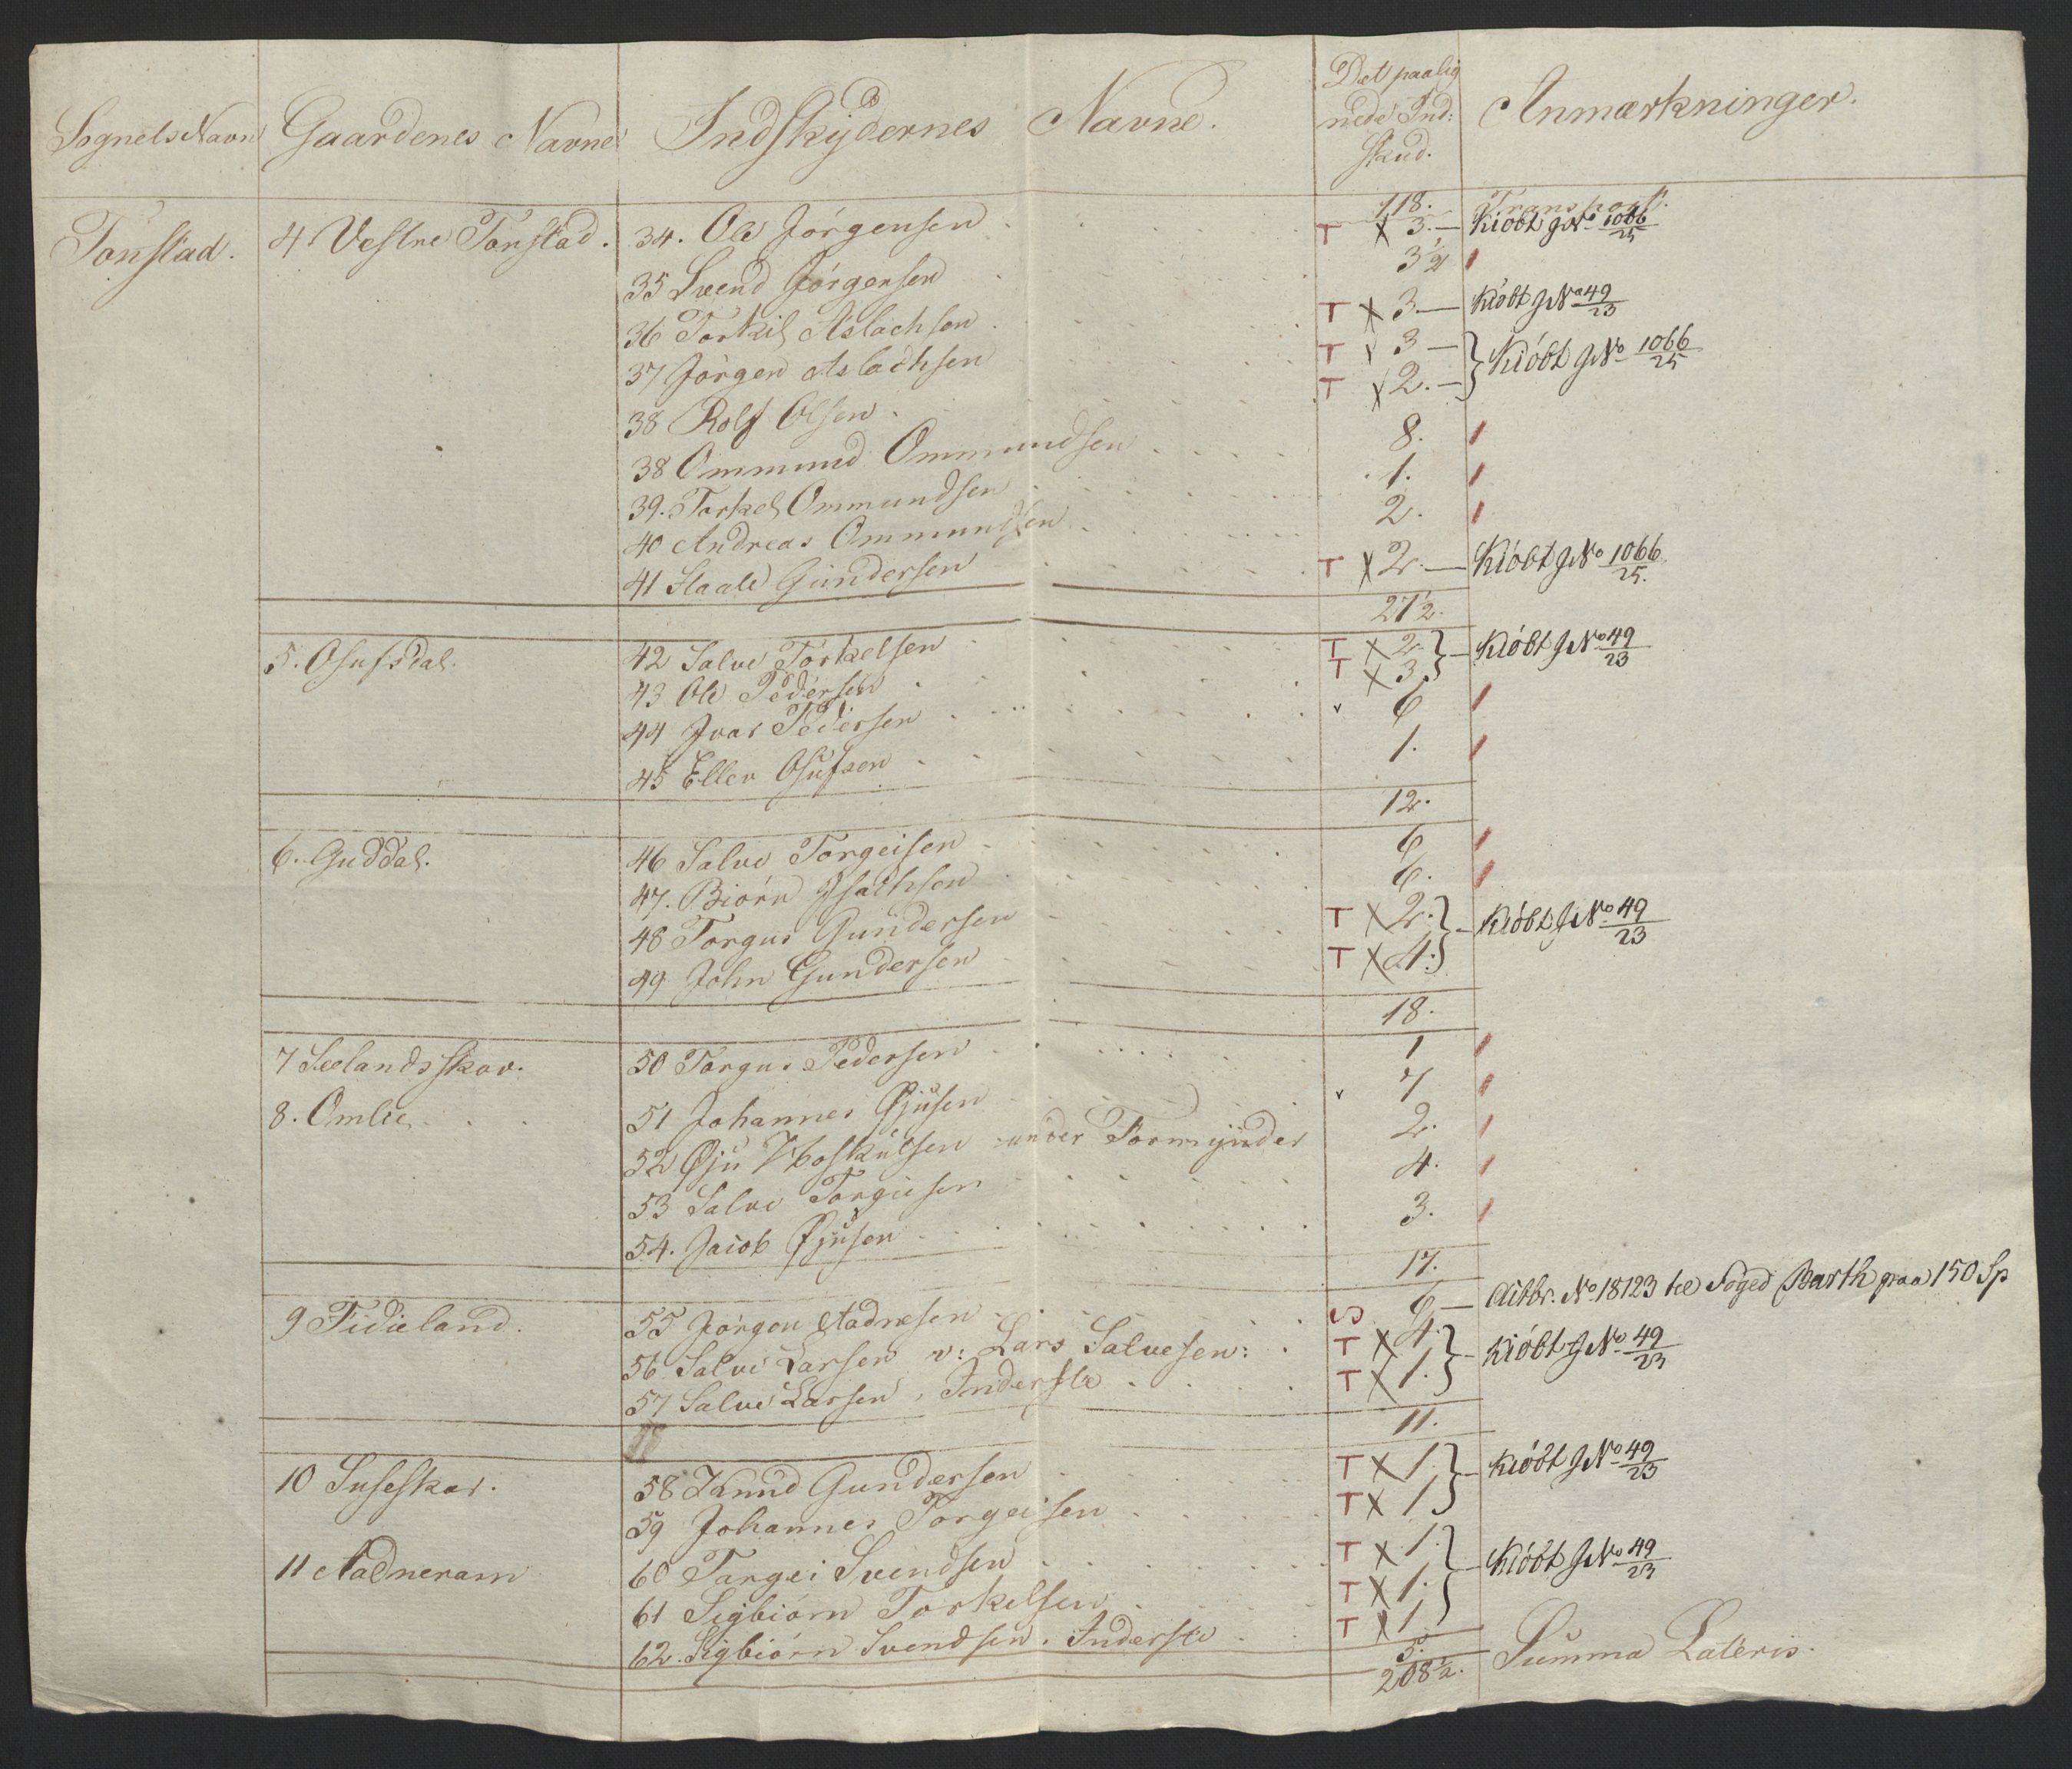 Sognets Navn Gaardenes Navne Indskydernes Navne. Det paalig nede Ind: skud. Anmærkninger.
118. Transport.
Tonstad. 4 Vestre Tonstad. 34. Ole Jörgensen T X 3.— Kiöbt J No 1066/25
35 Svend Jörgensen 3½
36 Torkil Aslachsen T X 3.— Kiöbt J No 49/23
37 Jörgen Aslachsen T X 3 — } Kiöbt J No 1066/25
38 Rolf Olsen T X 2.— }
38 Ommund Ommundsen 8.
39. Torkel Ommundsen 1.
40 Andreas Ommundsen 2.
41 Staale Gundersen T X 2.— Kiöbt J No 1066/25.
27½.
5. Osufsdal. 42 Salve Törkelsen T X 2. } Kiöbt J No 49/23
43 Ole Pedersen T X 3. }
44 Ivar Pedersen 6
45 Eller Osufsen 1.
12.
6. Guddal. 46 Salve Torgeisen 6
47. Biörn Isachsen 6.
48 Torgus Gundersen T X 2. } Kiöbt J No 49/23
49 John Gundersen T X 4. }
18.
7 Seelandsskar. 50 Torgus Pedersen 1
8. Omlie 51 Johannes Øjusen 7
52 Øju Hoskulsen under Formynder 2.
53 Salve Torgiesen 4.
54. Jacob Øjusen 3.
17.
9 Fidieland. 55 Jörgen Aadnesen S 6 — Actbr. No 18123 til Foged Barth paa 150 Sp
56 Salve Larsen v: Lars Salvesen: T X 4. } Kiöbt J No 49/23
57 Salve Larsen, Inderste T X 1. }
11.
10 Suseskar. 58 Knud Gundersen T X 1. } Kiöbt J No 49/23
59 Johannes Torgeisen T X 1 }
11 Aadneram 60 Targei Svendsen T X 1. } Kiöbt J No 49/23
61 Sigbiörn Torkelsen T X 1. }
62. Sigbiörn Svendsen. Inderste T X 1 }
5.
208½. Summa Lateris.